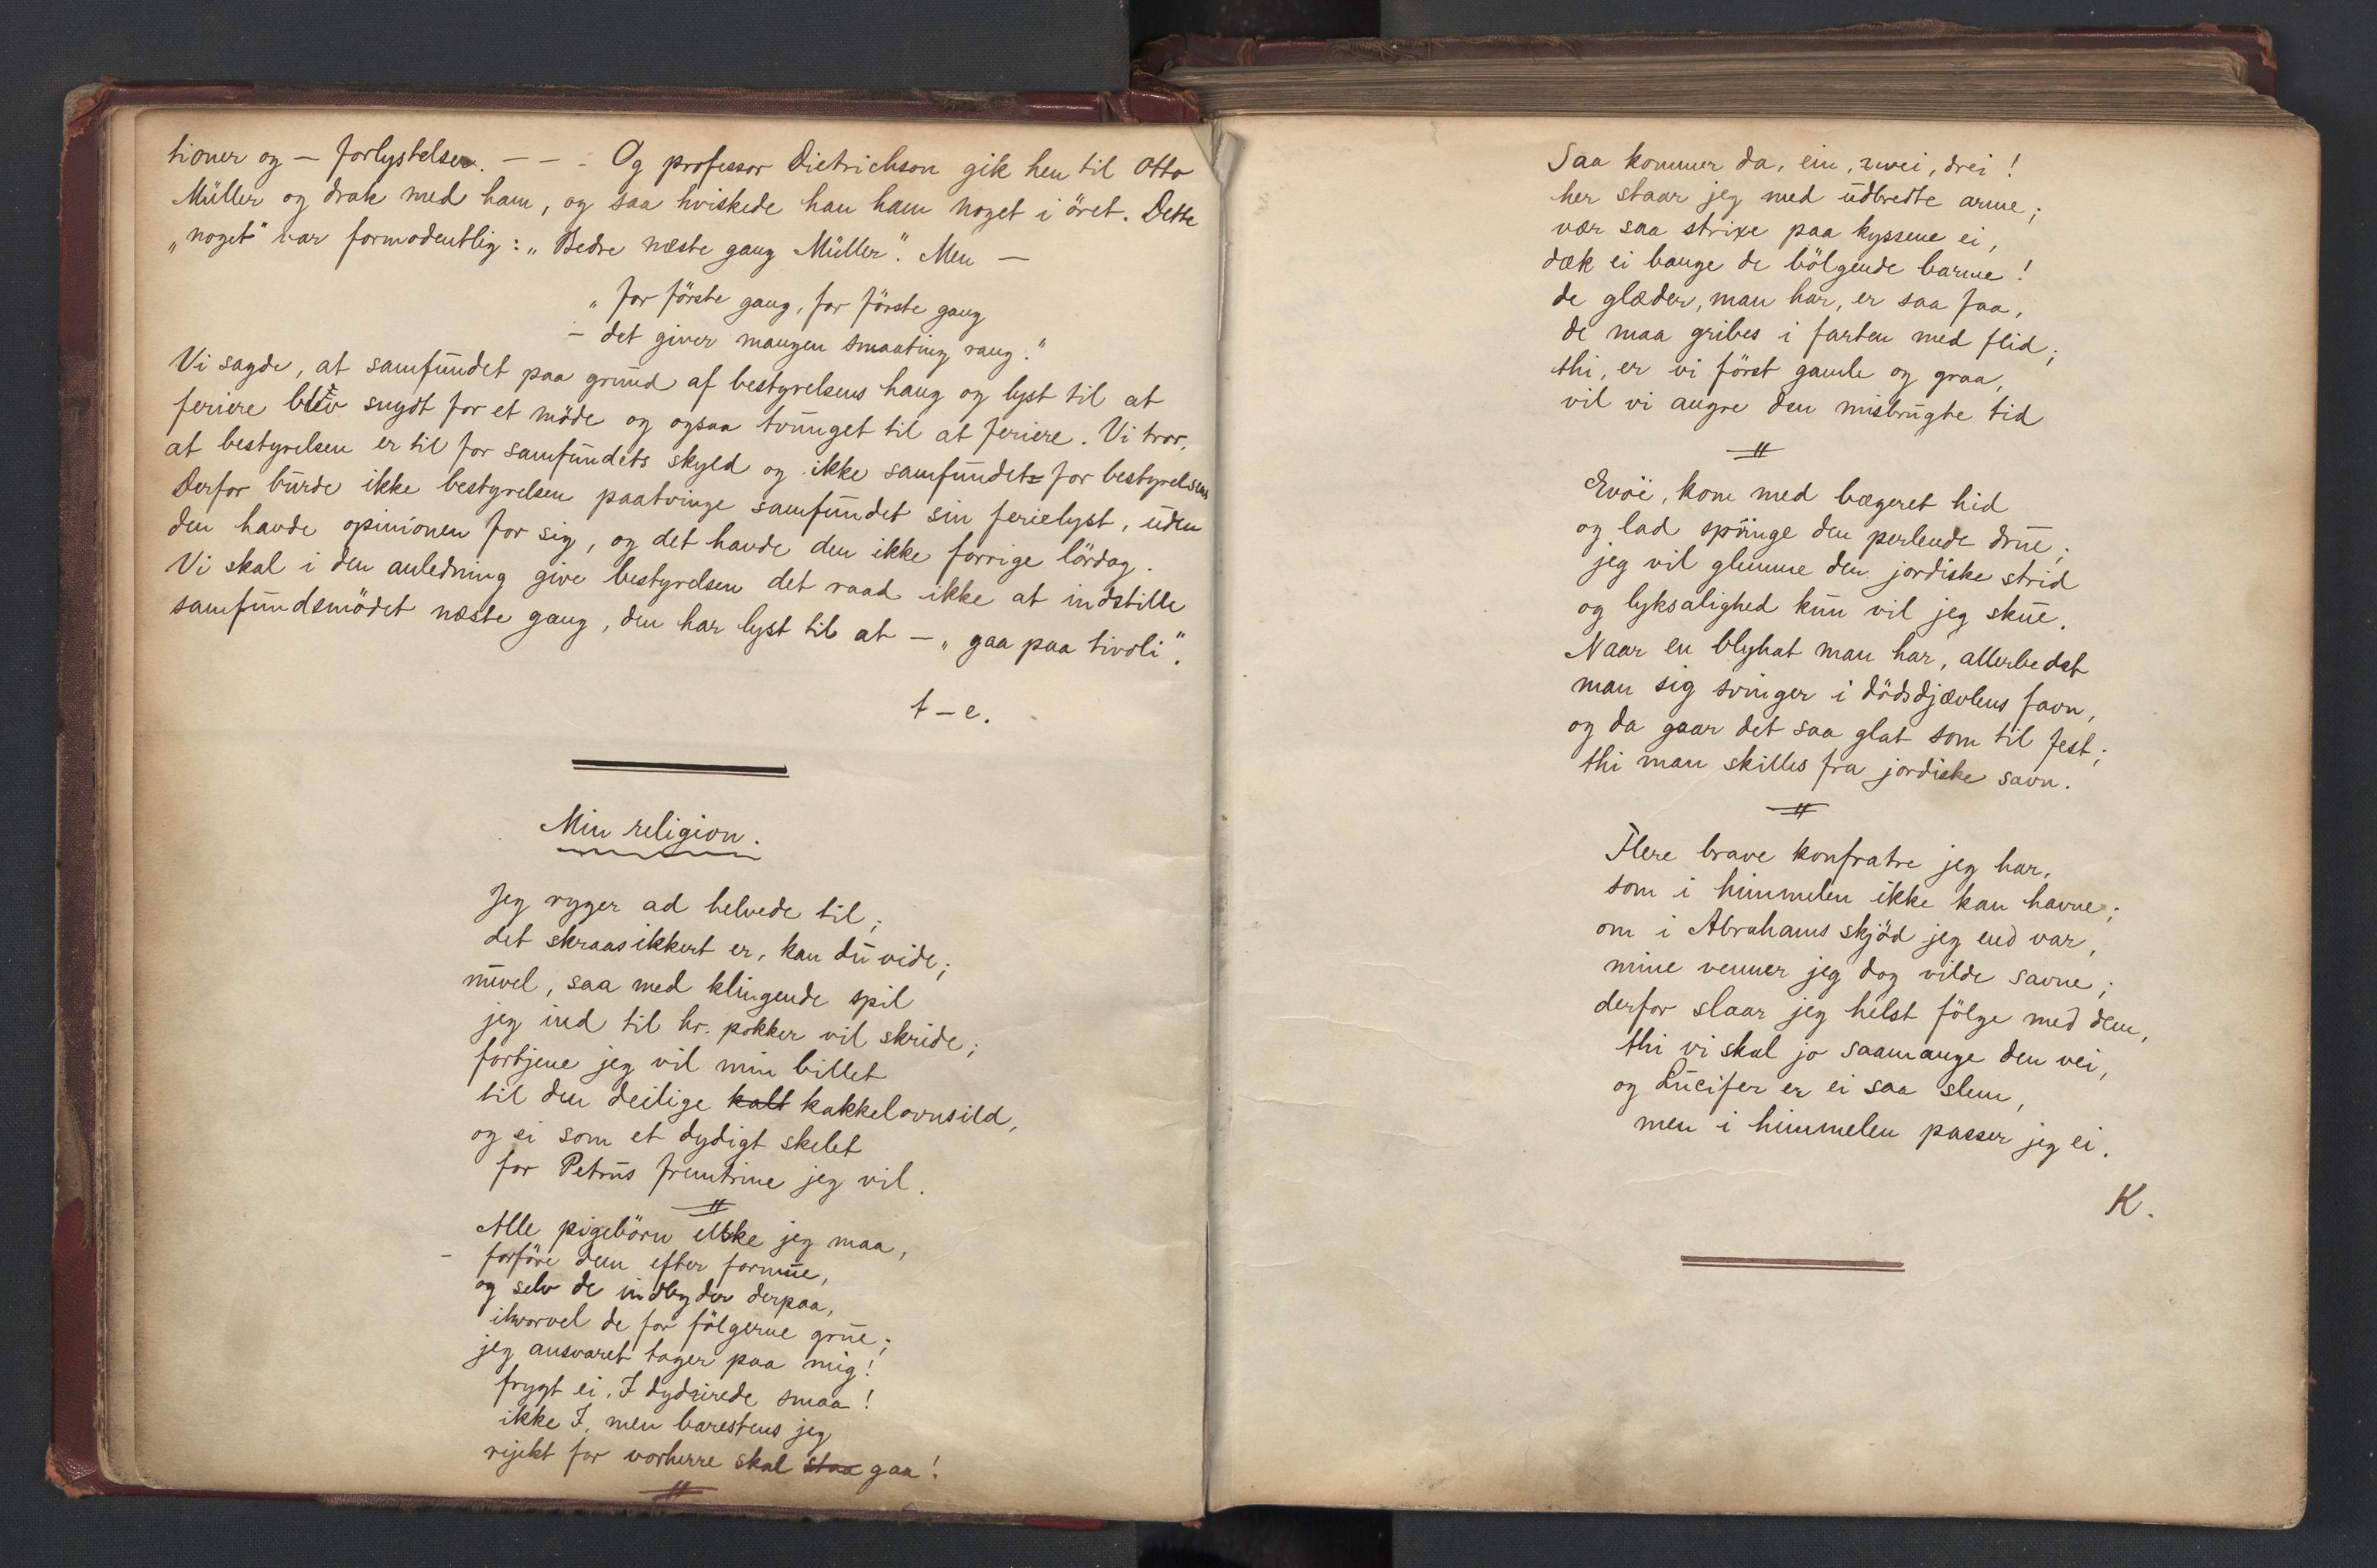 tioner og — forlystelser. — — - Og professor Dietrichson gik hen til Otto
Müller og drak med ham, og saa hviskede han ham noget i öret. Dette
„noget" var formodentlig: „Bedre næste gang Müller". Men —
„for förste gang, for förste gang
– det giver mangen smaating rang."
Vi sagde, at samfundet paa grund af bestyrelsens hang og lyst til at
feriere blev snydt for et möde og ogsaa tvunget til at feriere. Vi tror,
at bestyrelsen er til for samfundets skyld og ikke samfundet for bestyrelsens
Derfor burde ikke bestyrelsen paatvinge samfundet sin ferielyst, uden
den havde opinionen for sig, og det havde den ikke forrige lördag.
Vi skal i den anledning give bestyrelsen det raad ikke at indstille
samfundsmödet næste gang, den har lyst til at — „gaa paa tivoli".
t–e.
Min religion.
Jeg ryger ad helvede til,
det skraasikkert er, kan du vide;
nuvel, saa med klingende spil
jeg ind til hr. pokker vil skride;
fortjene jeg vil min billet
til den deilige kalt kakkelovnsild,
og ei som et dydigt skelet
for Petrus fremtrine jeg vil.
Alle pigebörn elske jeg maa,
– forföre dem efter formue,
og selv de indbyder derpaa,
ihvorvel de for fölgerne grue;
jeg ansvaret tager paa mig!
frygt ei, I dydsirede smaa!
ikke I, men barestens jeg
rejekt for vorherre skal staa gaa!
Saa kommer da, ein, zwei, drei!
her staar jeg med udbredte arme;
vær saa strixe paa kyssene ei,
dæk ei bange de bölgende barme!
de glæder, man har, er saa faa,
de maa gribes i farten med flid;
thi, er vi först gamle og graa,
vil vi angre den misbrugte tid
Evöi, kom med bægeret hid
og lad springe den perlende drue;
jeg vil glemme den jordiske strid
og lyksalighed kun vil jeg skue.
Naar en blyhat man har, allerbedst
man sig svinger i dödsdjævlens favn,
og da gaar det saa glat som til fest;
thi man skilles fra jordiske savn.
Flere brave konfratre jeg har,
som i himmelen ikke kan havne;
om i Abrahams skjöd jeg end var,
mine venner jeg dog vilde savne;
derfor slaar jeg helst fölge med dem,
thi vi skal jo saamange den vei,
og Lucifer er ei saa slem,
men i himmelen passer jeg ei.
K.